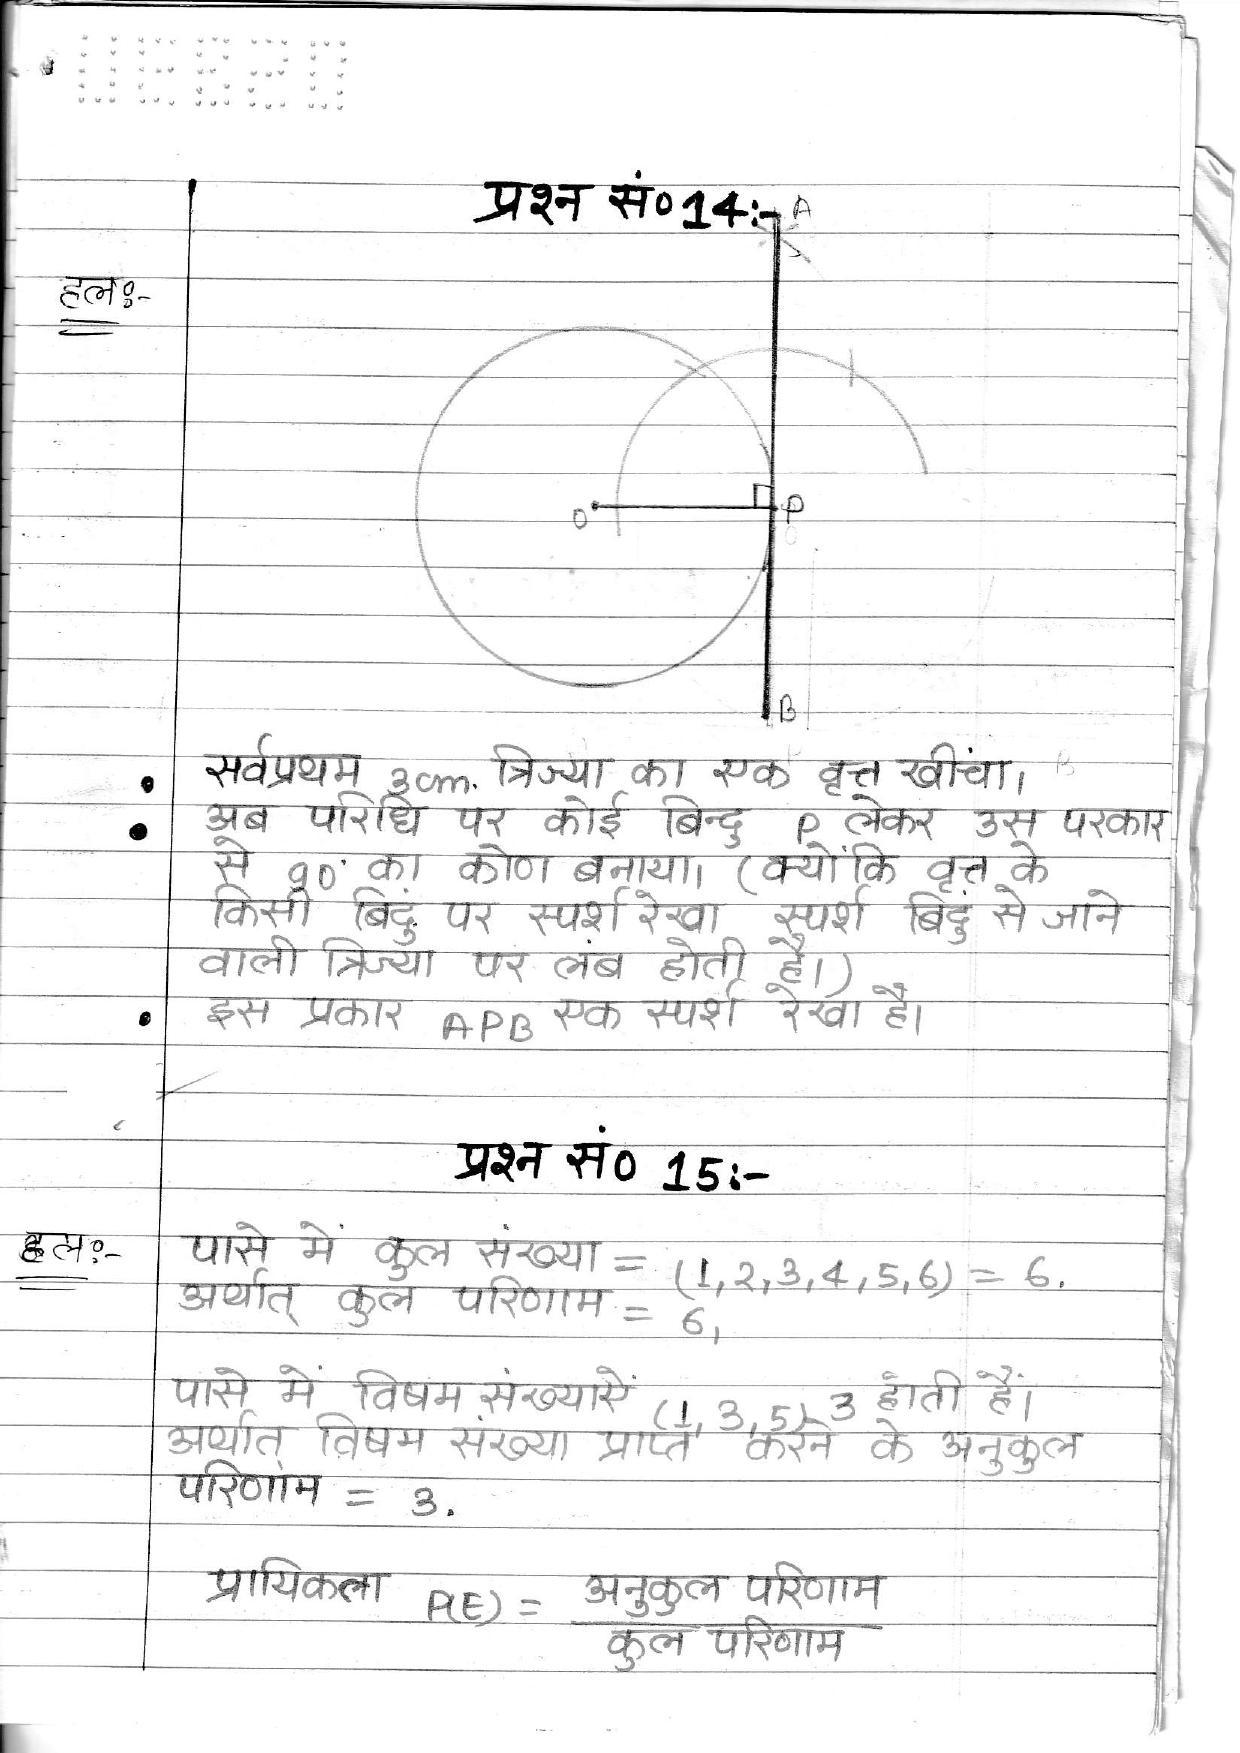 प्रश्न सं० 14:-
A
हल:-
O
P
B
सर्वप्रथम 3cm. त्रिज्या का एक वृत्त खींचा।
अब परिधि पर कोई बिन्दु P लेकर उस परकार
से 90° का कोण बनाया। (क्योंकि वृत्त के
किसी बिंदु पर स्पर्श रेखा स्पर्श बिंदु से जाने
वाली त्रिज्या पर लंब होती है।)
इस प्रकार APB एक स्पर्श रेखा है।
प्रश्न सं० 15:-
हल:- पासे में कुल संख्या = (1,2,3,4,5,6) = 6.
अर्थात् कुल परिणाम = 6,
पासे में विषम संख्याऐं (1,3,5) 3 होती हैं।
अर्थात् विषम संख्या प्राप्त करने के अनुकुल
परिणाम = 3.
प्रायिकता P(E) = अनुकुल परिणाम
कुल परिणाम